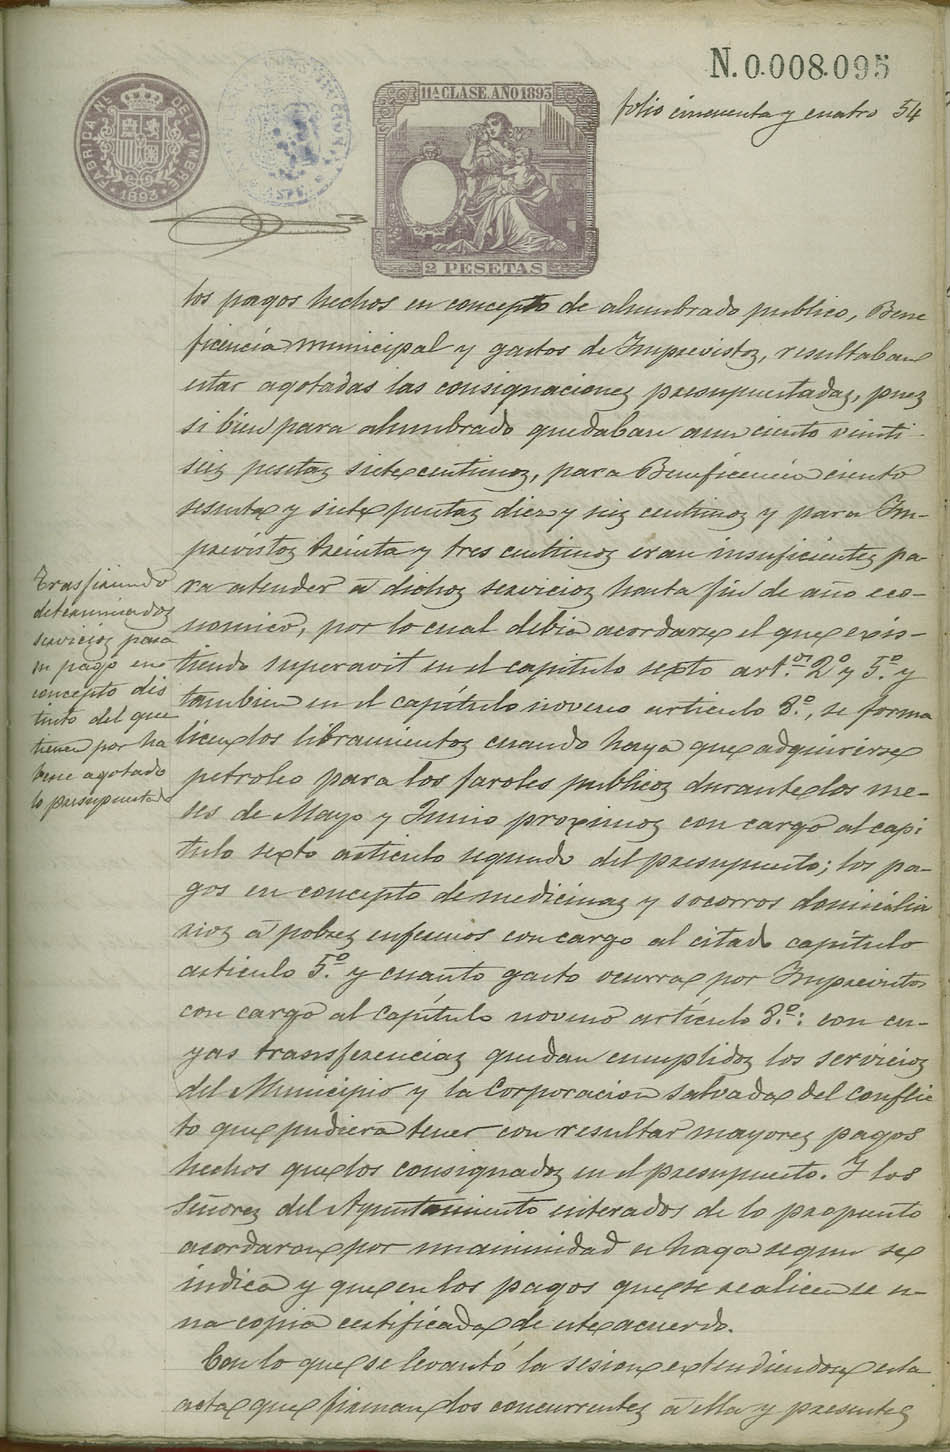 N.0.008.095
FABRICA NL. DEL TIMBRE
1893
11A CLASE. AÑO 1893
2 PESETAS
folio cincuenta y cuatro 54
los pagos hechos en concepto de alumbrado publico, Bene
ficencia municipal y gastos de Imprevistos, resultaban
estar agotadas las consignaciones presupuestadas, pues
si bien para alumbrado quedaban aun ciento vinti-
seis pesetas siete centimos, para Beneficencia ciento
sesenta y siete pesetas diez y seis centimos y para Im-
previstos treinta y tres centimos eran insuficientes pa-
ra atender á dichos servicios hasta fin de año eco-
nomico, por lo cual debia acordarse el que exis-
tiendo superavit en el capitulo sexto art.os 2º y 5.º y
tambien en el capítulo noveno articulo 8.º, se forma
licen los libramientos cuando haya que adquirirse
petroleo para los faroles publicos durante los me-
ses de Mayo y Junio proximos con cargo al capi
tulo sexto articulo segundo del presupuesto; los pa-
gos en concepto de medicinas y socorros domicilia
rios á pobres enfermos con cargo al citado capítulo
articulo 5.º y cuanto gasto ocurra por Imprevistos
con cargo al capítulo noveno artículo 8.º: con cu-
yas transferencias quedan cumplidos los servicios
del Municipio y la Corporacion salvada del conflic
to que pudiera tener con resultar mayores pagos
hechos que los consignados en el presupuesto. Y los
Señores del Ayuntamiento enterados de lo propuesto
acordaron por unanimidad se haga segun se
indica y que en los pagos que se realicen se u-
na copia certificada de este acuerdo.
Con lo que se levantó la sesion extendiendose esta
acta que firman los concurrentes á ella y presentes
Trasfiriendo
determinados
servicios para
su pago en
concepto dis
tinto del que
tienen por ha
berse agotado
lo presupuestado